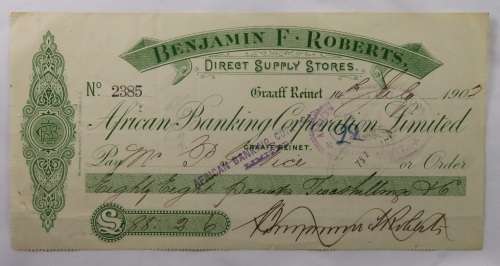 BENJAMIN F. ROBERTS,
DIRECT SUPPLY STORES.
No 2385 Graaff Reinet 14th July 1902
African Banking Corporation Limited
GRAAFF REINET.
Pay Mr or Order
AFRICAN BANKING CO
Eighty Eight Pounds Two shillings & 6
£ 88. 2. 6 Benjamin F Roberts